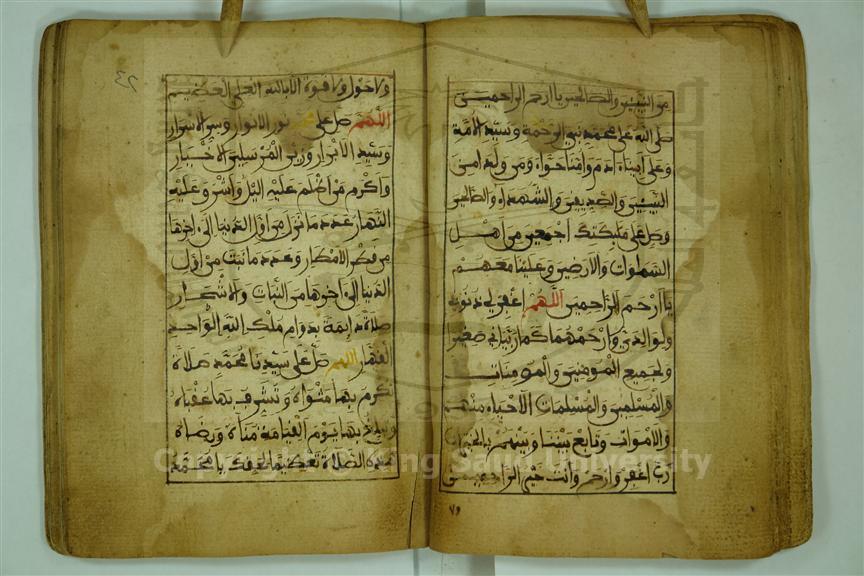 من النبيين والصالحين يا ارحم الراحمين
صلى الله على محمد نبي الرحمة وسيد الامة
وعلى ابينا ادم وامنا حواء ومن ولد امن
النبيين والصديقين والشهداء والصالحين
وصل على ملئكتك اجمعين من اهل
السموات والارضين وعلينا معهم
يا ارحم الراحمين اللهم اغفر لي ذنوبي
ولوالدي وارحمهما كما ربياني صغيرا
ولجميع المومنين والمومنات
والمسلمين والمسلمات الاحياء منهم
والاموات وتابع بيننا وبينهم بالخيرات
رب اغفر وارحم وانت خير الراحمين
٧٩
٤٢
ولا حول ولا قوة الا بالله العلي العظيم
اللهم صل على محمد نور الانوار وسر الاسرار
وسيد الابرار وزين المرسلين الاخيار
واكرم من اظلم عليه اليل واشرق عليه
النهار عدد ما نزل من اول الدنيا الى اخرها
من قطر الامطار وعدد ما نبت من اول
الدنيا الى اخرها من النبات والاشجار
صلاة دايمة بدوام ملك الله الواحد
القهار اللهم صل على سيدنا محمد صلاة
تكرم بها مثواه وتشرف بها عقباه
وتبلغ بها يوم القيامة مناه ورضاه
هذه الصلاة تعظيما لحقك يا محمد
Copyright © King Saud University